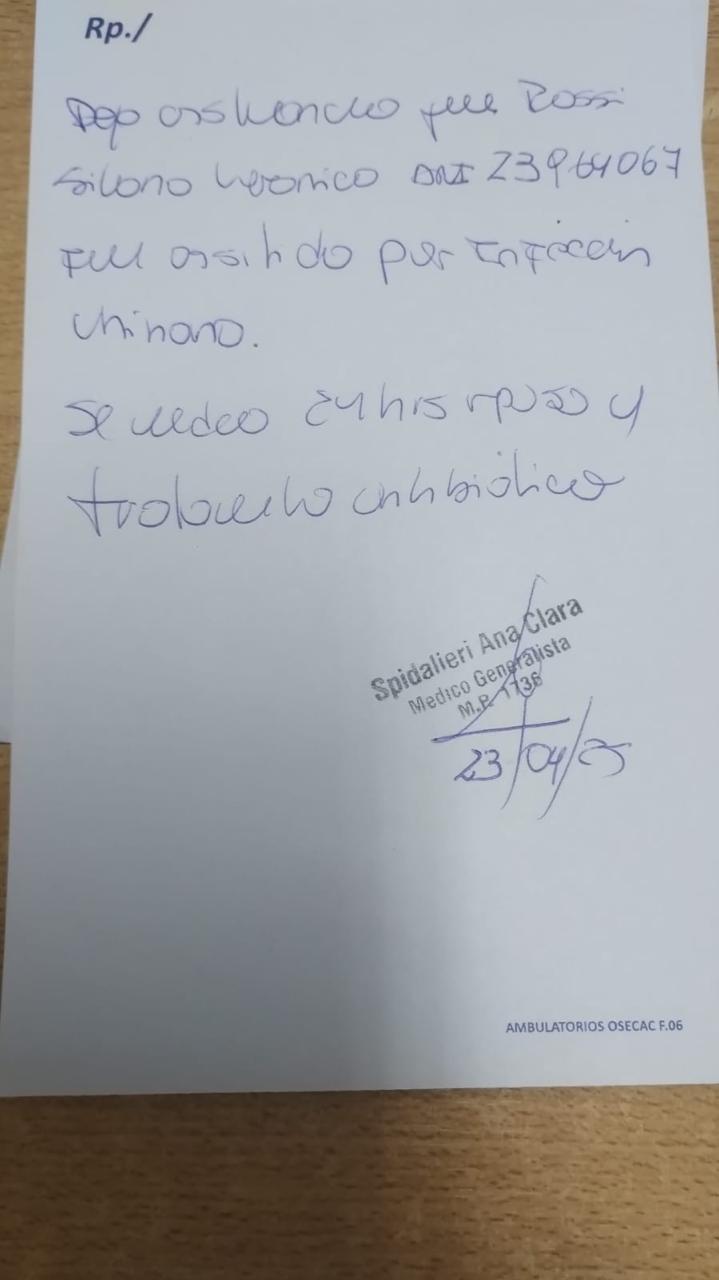 Rp./
Dejo constancia que Rossi
Silvana Veronica DNI 23964067
fue asistido por Infección
Urinaria.
Se indica 24 hrs reposo y
tratamiento antibiótico
Spidalieri Ana Clara
Medico Generalista
M.P. 1736
23/04/25
AMBULATORIOS OSECAC F.06